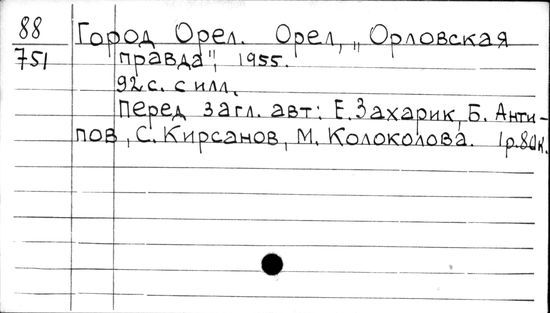 88 Город Орел. Орел, „Орловская
751 правда", 1955.
92 с. с илл.
Перед загл. авт: Е. Захарик, Б. Анти-
пов, С. Кирсанов, М. Колоколова. 1р.80к.